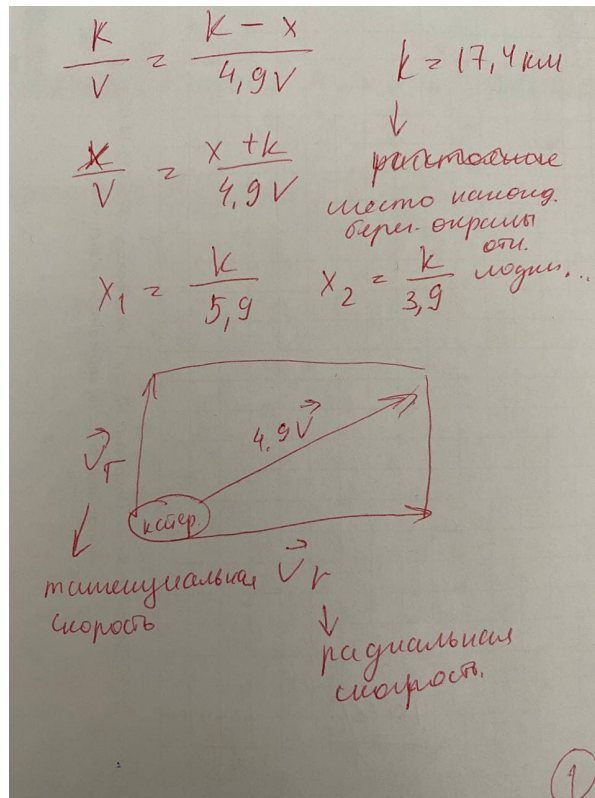 k/v = (k - x)/4,9v
k = 17,4 км
↓
x/v = (x + k)/4,9v
расстояние
место наход.
берег. охраны
отн.
лодки...
x₁ = k/5,9
x₂ = k/3,9
4,9v⃗
v⃗ᵣ
катер.
тангенциальная
скорость
v⃗r
радиальная
скорость.
1